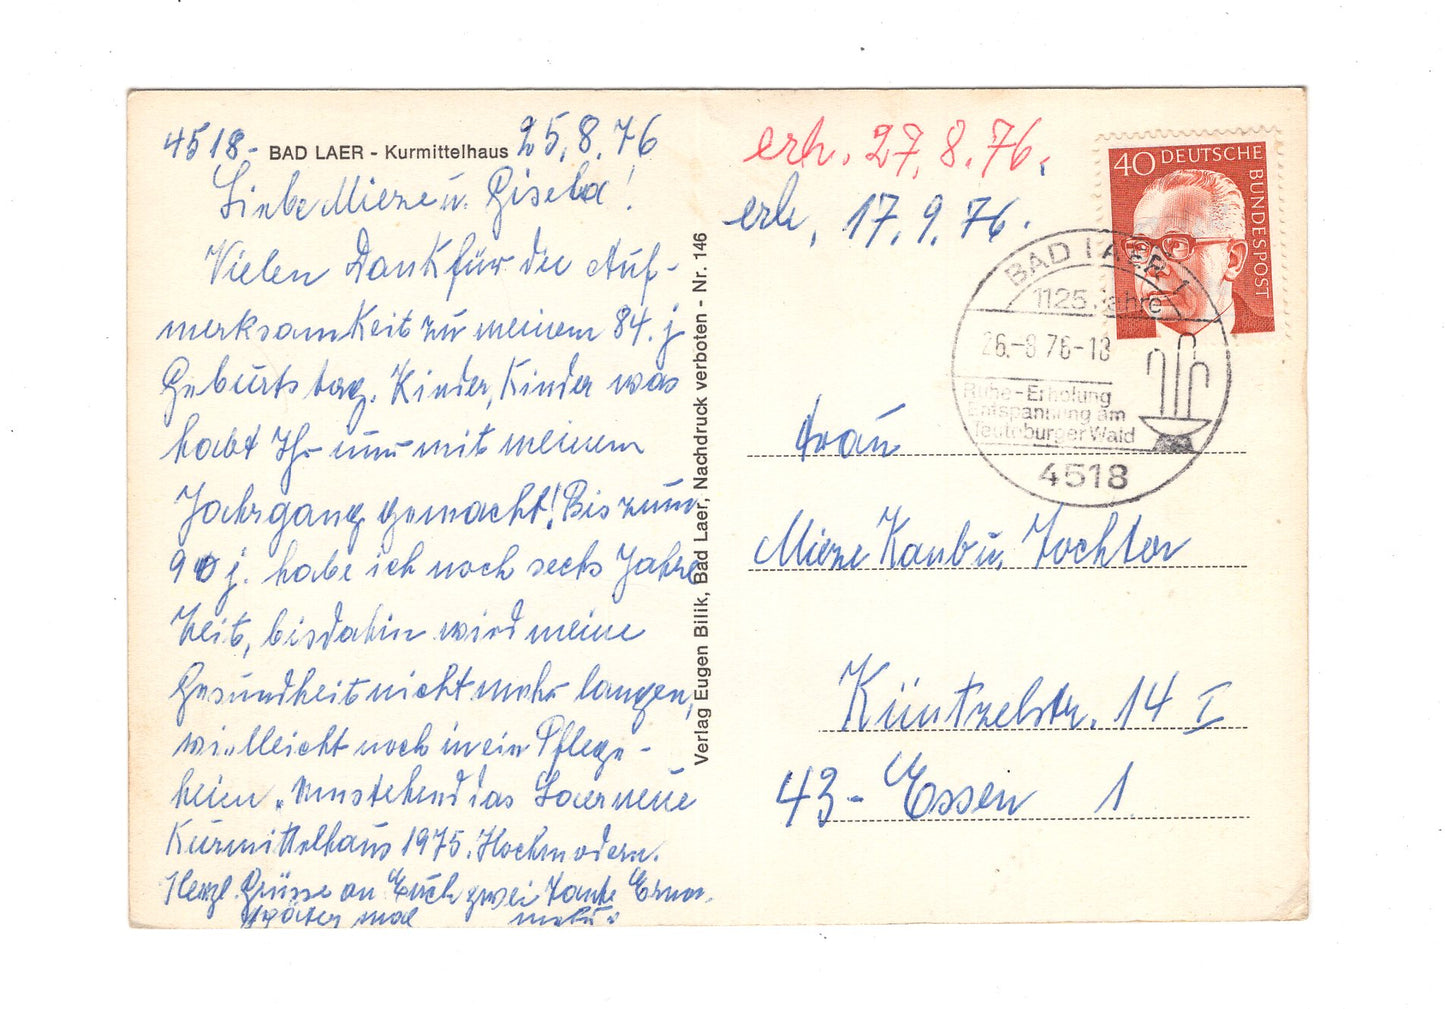 4518- BAD LAER - Kurmittelhaus 25.8.76
Liebe Mieze u. Gisela!
Vielen Dank für die Auf-
merksamkeit zu meinem 84. j
Geburtstag. Kinder, Kinder was
habt Ihr nur mit meinem
Jahrgang gemacht! Bis zum
90 j. habe ich noch sechs Jahre
Zeit, bis dahin wird meine
Gesundheit nicht mehr langen,
vielleicht noch in ein Pflege-
heim. Umstehend das Laer neue
Kurmittelhaus 1975. Hochmodern.
Herzl. Grüsse an Euch zwei Tante Erna.
später mal mehr
Verlag Eugen Bilik, Bad Laer, Nachdruck verboten - Nr. 146
erh. 27.8.76.
erh. 17.9.76.
40 DEUTSCHE
BUNDESPOST
BAD LAER 1
1125 Jahre
26.-8.76-18
Ruhe-Erholung
Entspannung am
Teutoburger Wald
4518
Frau
Mieze Kaub u. Tochter
Küntzelstr. 14 I
43- Essen 1